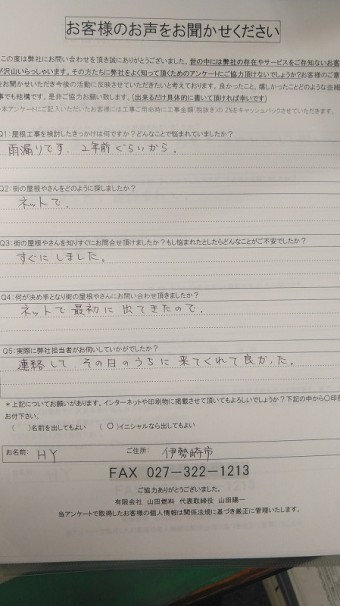 お客様のお声をお聞かせください
この度は弊社にお問い合わせを頂き誠にありがとうございました。世の中には弊社の存在やサービスをご存知ないお客
が沢山いらっしゃいます。その方たちに弊社をよく知って頂くためのアンケートにご協力頂けないでしょうか?お客様のご意
をお聞かせいただき今後の活動に反映させていただきたいと考えております。良かったこと、嬉しかったことどのような些細
事でも結構です。是非ご協力お願い致します。(出来るだけ具体的に書いて頂ければ幸いです)
本アンケートにご記入いただいたお客様には工事ご用命時に工事金額(税抜き)の2%をキャッシュバックさせていただきます。
Q1:屋根工事を検討したきっかけは何ですか?どんなことで悩まれていましたか?
雨漏りです。2年前ぐらいから。
Q2:街の屋根やさんをどのように探しましたか?
ネットで。
Q3:街の屋根やさんを知りすぐにお問合せ頂けましたか?もし悩まれたとしたらどんなことがご不安でしたか?
すぐにしました。
Q4:何が決め手となり街の屋根やさんにお問い合わせ頂きましたか?
ネットで最初に出てきたので。
Q5:実際に弊社担当者がお伺いしていかがでしたか?
連絡して その日のうちに来てくれて良かった。
*上記についてお願いがあります。インターネットや印刷物に掲載させて頂いてもよろしいでしょうか?下記の中から〇印を
お付下さい。
( )名前を出してもよい (〇)イニシャルなら出してもよい
お名前: HY ご住所: 伊勢崎市
FAX 027-322-1213
ご協力ありがとうございました。
有限会社 山田燃料 代表取締役 山田陽一
当アンケートで取得したお客様の個人情報は関係法規に基づき厳正に管理いたします。